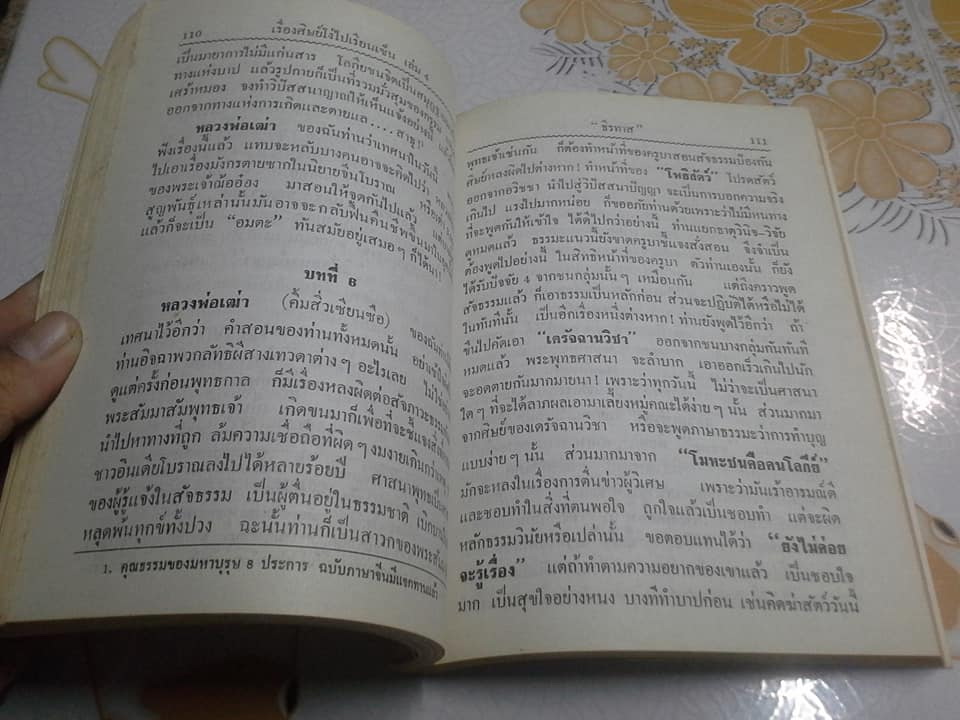 110 เรื่องศิษย์โง่ไปเรียนเซ็น เล่ม 4
เป็นมายาการไม่มีแก่นสาร โลกิยชนจิตเป็นสมุฏฐาน
ทางแห่งบาป แล้วรูปกายก็เป็นที่รวมมั่วสุมของความ
เศร้าหมอง จงทำวิปัสสนาญาณให้เห็นแจ้งอย่างนี้
ออกจากทางแห่งการเกิดและตายแล....สาธุ!
หลวงพ่อเฒ่า ของฉันท่านเทศนาในวันนี้
ฟังเรื่องนี้แล้ว แทบจะหลับบางคนอาจจะคิดไปว่า
ไปเอาเรื่องมังกรตายซากในนิยายจีนโบราณ หรือเต่า
ของพระเจ้าฌ้ออ๋อง มาสอนให้จุดกันไปแล้ว
สูญพันธุ์เหล่านั้นมันอาจจะกลับฟื้นคืนชีพขึ้นมาใน
แล้วก็จะเป็น “อมตะ” ทันสมัยอยู่เสมอๆ ก็ได้นา!
บทที่ 6
หลวงพ่อเฒ่า (คิ้มสิ่วเซียนซือ) ของฉันท่าน
เทศนาไว้อีกว่า คำสอนของท่านทั้งหมดนั้น อย่าเข้าใจ
ท่านอิจฉาพวกลัทธิผีสางเทวดาต่างๆ อะไรเลย ไม่ใช่
ดูแต่ครั้งก่อนพุทธกาล ก็มีเรื่องหลงผิดต่อสัจภาวะธรรม
พระสัมมาสัมพุทธเจ้า เกิดขนมาก็เพื่อที่จะชี้แจงสั่ง
นำไปหาทางที่ถูก ล้มความเชื่อถือที่ผิดๆ งมงายเกินกว่า
ชาวอินเดียโบราณลงไปได้หลายร้อยปี ศาสนาพุทธเป็น
ของผู้รู้แจ้งในสัจธรรม เป็นผู้ตื่นอยู่ในธรรมชาติ เบิกบาน
หลุดพ้นทุกข์ทั้งปวง ฉะนั้นท่านก็เป็นสาวกของพระสัม
1. คุณธรรมของมหาบุรุษ 8 ประการ ฉบับภาษาจีนมีแจกทานแล้ว
“ธีรทาส” 111
พุทธเจ้าเช่นกัน ก็ต้องทำหน้าที่ของครูบาสอนสัจธรรมป้องกัน
ศิษย์หลงผิดไปต่างหาก! ทำหน้าที่ของ “โพธิสัตว์” โปรดสัตว์
ออกจากอวิชชา นำไปสู่วิปัสสนาปัญญา จะเป็นการบอกความจริง
เกินไป แรงไปมากหน่อย ก็ขออภัยท่านด้วยเพราะว่าไม่มีหนทาง
ที่จะพูดกันให้เข้าใจ ได้ดีไปกว่าอย่างนี้ ท่านแยกธาตุวินิจ-วิจัย
ดูหมดแล้ว ธรรมะแนวนี้ยังขาดครูบาชี้แจงสั่งสอน จึงจำเป็น
ต้องพูดไปอย่างนี้ ในสิทธิหน้าที่ของครูบา ตัวท่านเองนั้น ก็ยัง
ได้รับปัจจัย 4 จากชนกลุ่มนั้นๆ เหมือนกัน แต่ถึงคราวพูด
สัจธรรมแล้ว ก็เอาธรรมเป็นหลักก่อน ส่วนจะปฏิบัติได้หรือไม่ได้
ในทันทีนั้น เป็นอีกเรื่องหนึ่งต่างหาก! ท่านยังพูดไว้อีกว่า ถ้า
ขืนไปคัดเอา “เดรัจฉานวิชา” ออกจากชนบางกลุ่มกันทันที
หมดแล้ว พระพุทธศาสนา จะลำบาก เอาออกเร็วเกินไปนัก
จะอดตายกันมากมายนา! เพราะว่าทุกวันนี้ ไม่ว่าจะเป็นศาสนา
ใดๆ ที่จะได้ลาภผลเอามาเลี้ยงหมู่คณะได้ง่ายๆ นั้น ส่วนมากมา
จากศิษย์ของเดรัจฉานวิชา หรือจะพูดภาษาธรรมะว่าการทำบุญ
แบบง่ายๆ นั้น ส่วนมากมาจาก “โมหะชนคือคนโลกีย์”
มักจะหลงในเรื่องการตื่นข่าวผู้วิเศษ เพราะว่ามันเร้าอารมณ์ดี
และชอบทำในสิ่งที่ตนพอใจ ถูกใจแล้วเป็นชอบทำ แต่จะผิด
หลักธรรมวินัยหรือเปล่านั้น ขอตอบแทนได้ว่า “ยังไม่ค่อย
จะรู้เรื่อง” แต่ถ้าทำตามความอยากของเขาแล้ว เป็นชอบใจ
มาก เป็นสุขใจอย่างหนง บางทีทำบาปก่อน เช่นคิดฆ่าสัตว์วันนี้